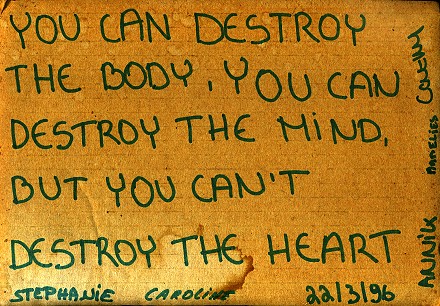 YOU CAN DESTROY
THE BODY, YOU CAN
DESTROY THE MIND,
BUT YOU CAN'T
DESTROY THE HEART
STEPHANIE CAROLINE 22/3/96
ANNICK ANNELIES